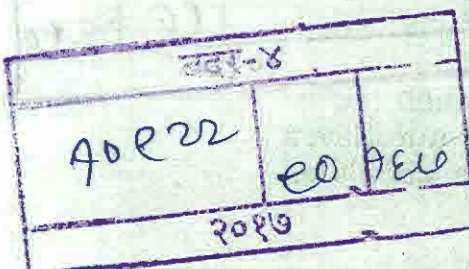 बदर-४
१०९२२ ९० १६७
२०१७